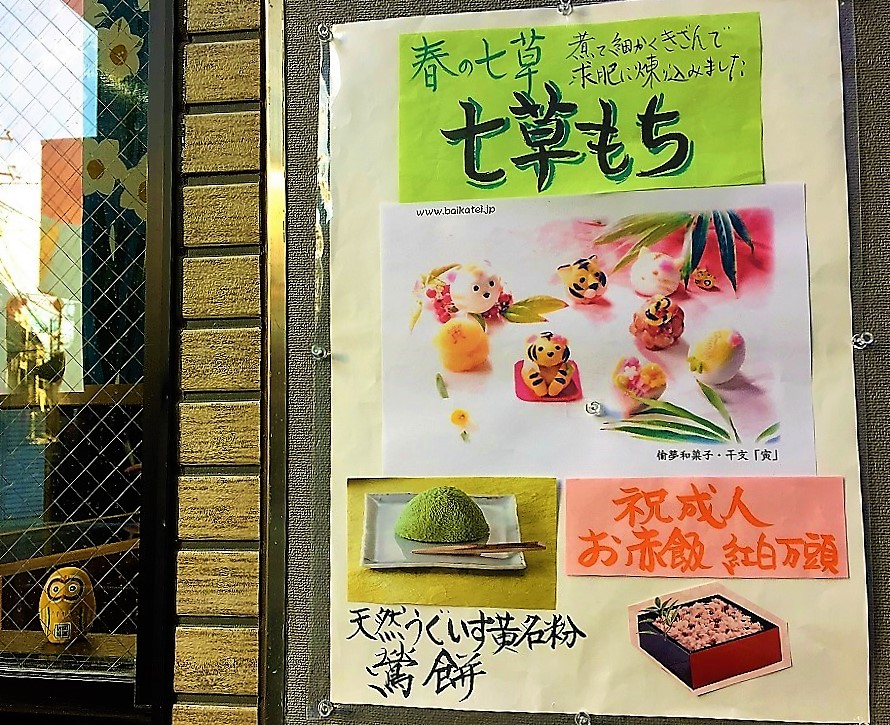 春の七草
煮て細かくきざんで
求肥に煉り込みました
七草もち
www.baikatei.jp
愉夢和菓子・干支「寅」
祝成人
お赤飯 紅白万頭
天然うぐいす黄名粉
鶯餅